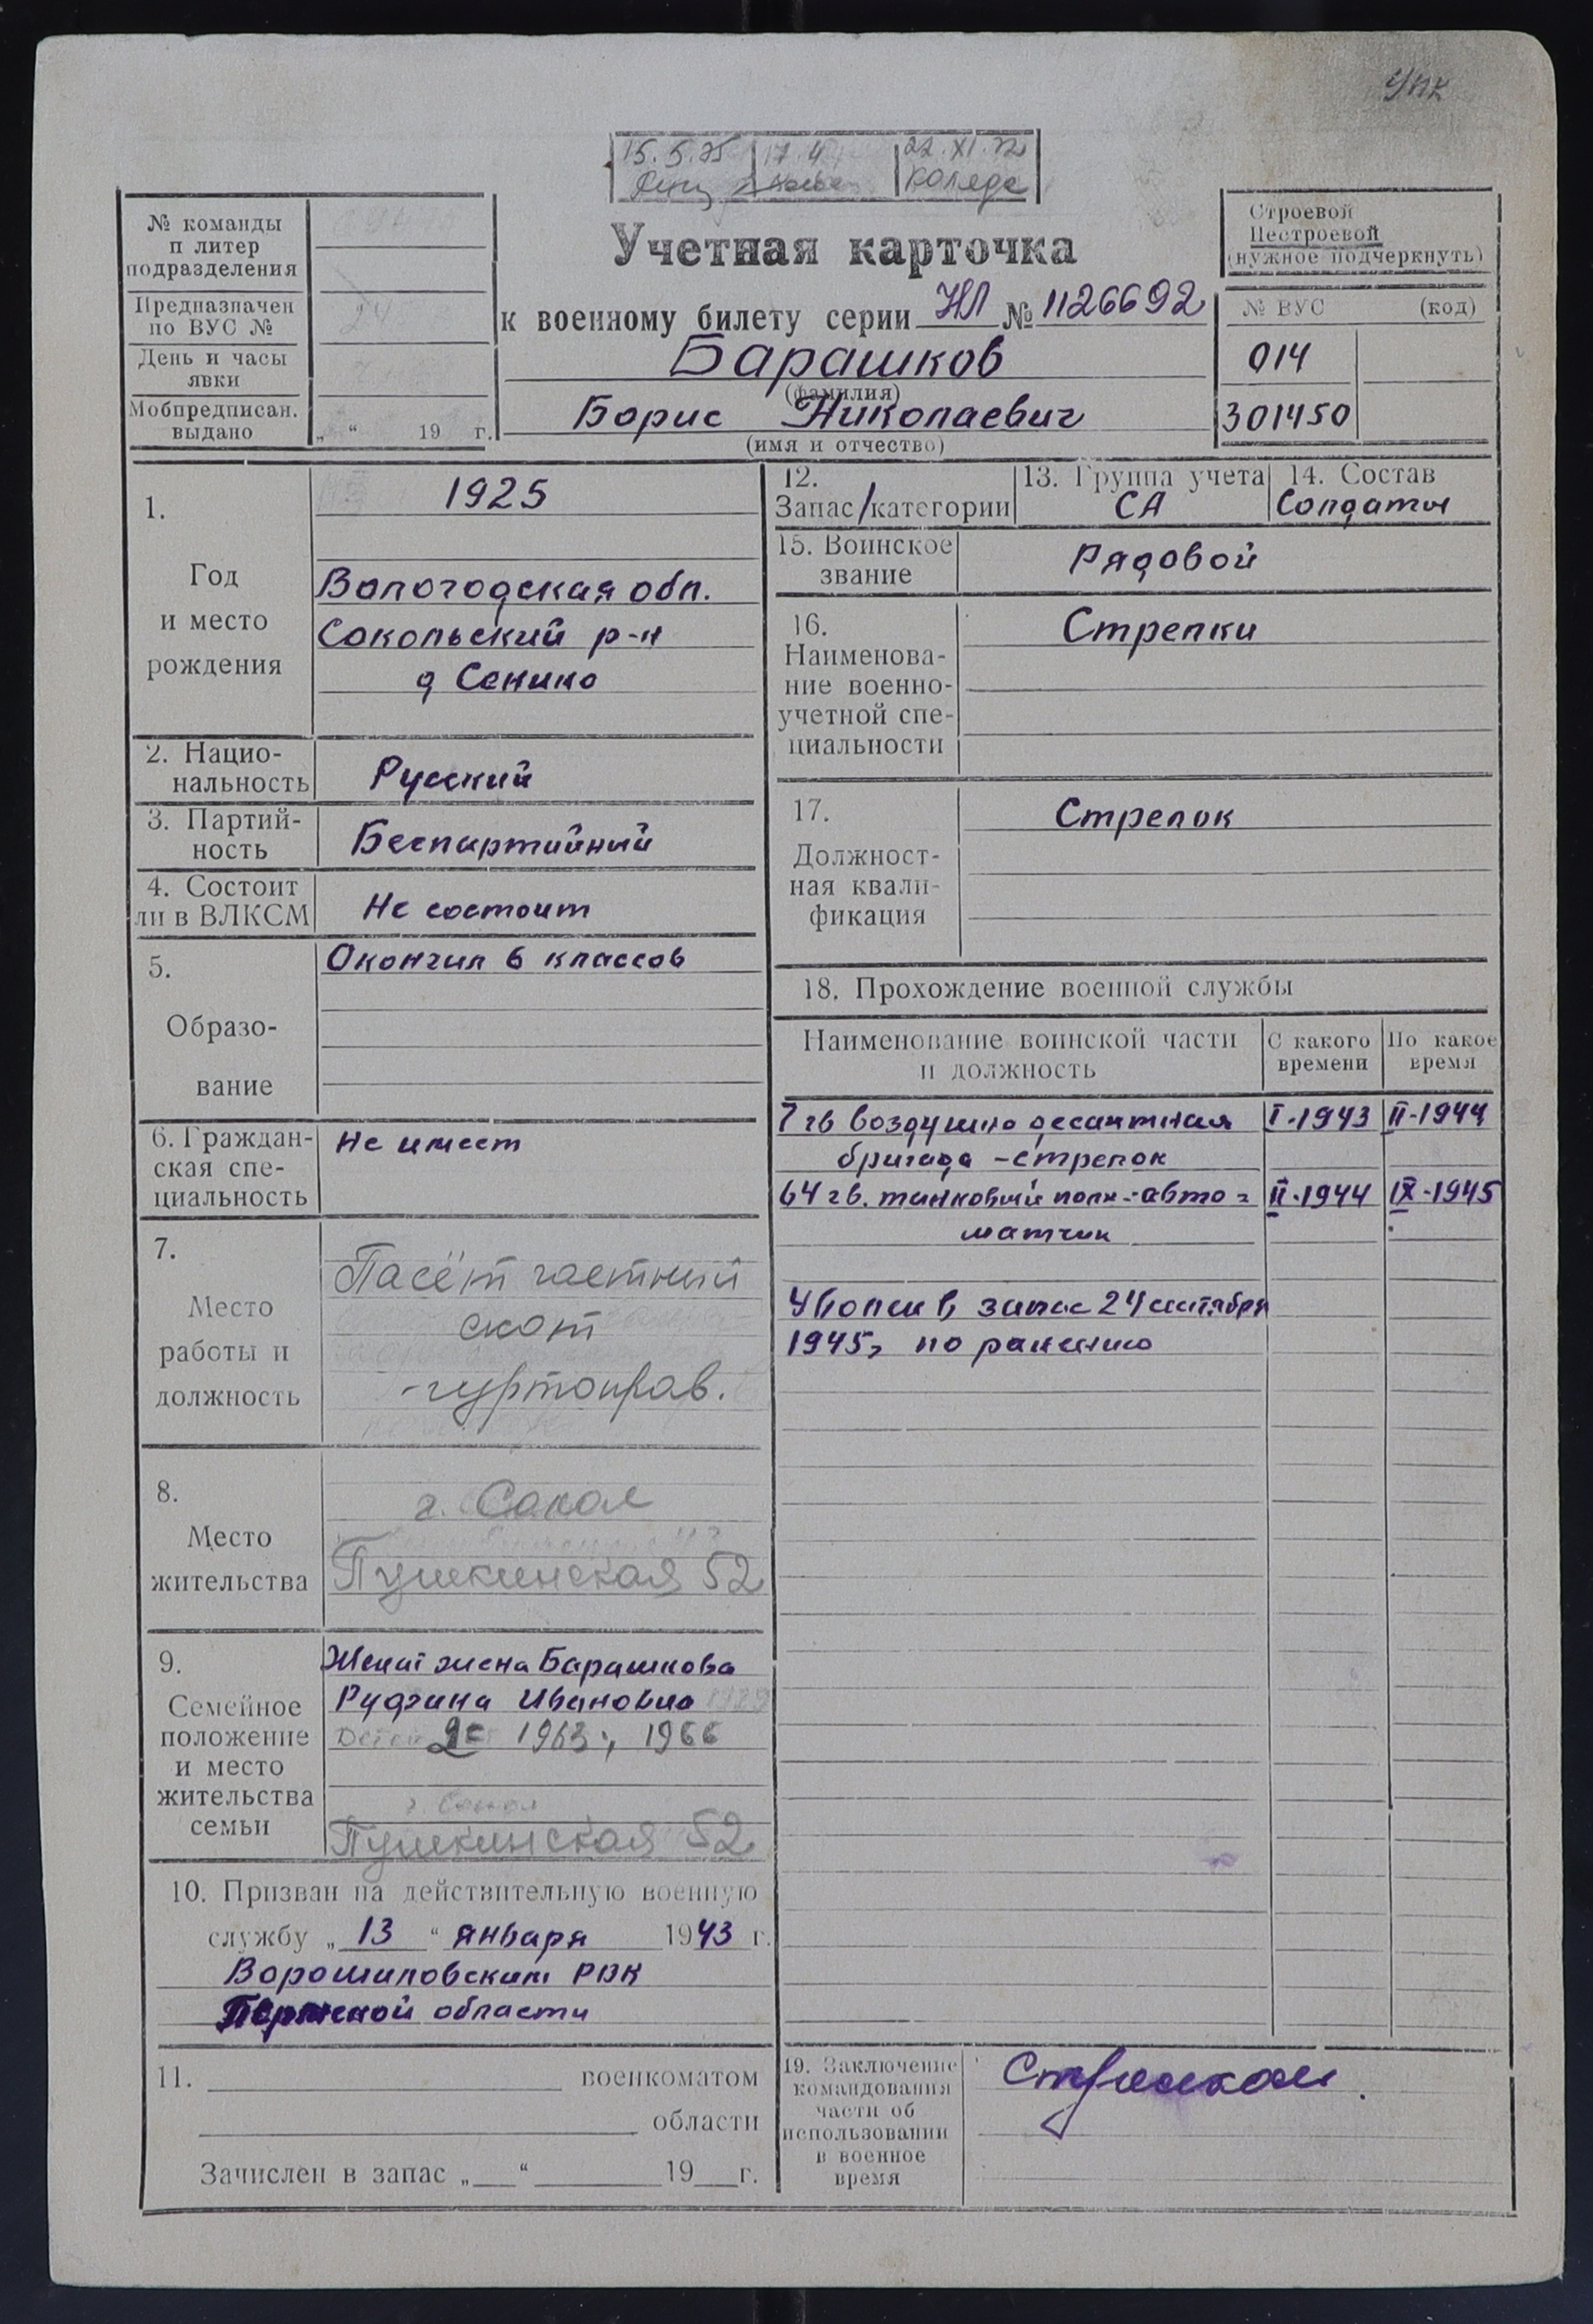 УПК
15.5.75 17.4 22.XI.72
Коледа
Учетная карточка
к военному билету серии НЛ № 1126692
Барашков
(фамилия)
Борис Николаевич
(имя и отчество)
№ команды
и литер
подразделения
Предназначен
по ВУС № 24
День и часы
явки
Мобпредписан.
выдано „ “ 19 г.
Строевой
Нестроевой
(нужное подчеркнуть)
№ ВУС (код)
014
301450
1.
Год
и место
рождения
1925
Вологодская обл.
Сокольский р-н
д Сенино
2. Нацио-
нальность
Русский
3. Партий-
ность
Беспартийный
4. Состоит
ли в ВЛКСМ
Не состоит
5.
Образо-
вание
Окончил 6 классов
6. Граждан-
ская спе-
циальность
Не имеет
7.
Место
работы и
должность
Пасёт частный
скот
-гуртоправ.
8.
Место
жительства
г. Сокол
Пушкинская 52
9.
Семейное
положение
и место
жительства
семьи
Женат жена Барашкова
Руфина Ивановна 1929
Дети 2е 1963, 1966
г. Сокол
Пушкинская 52
10. Призван на действительную военную
службу „ 13 “ января 1943 г.
Ворошиловским РВК
Пермской области
11. военкоматом
области
Зачислен в запас „ “ 19 г.
12.
Запас/категории
13. Группа учета
СА
14. Состав
Солдаты
15. Воинское
звание
Рядовой
16.
Наименова-
ние военно-
учетной спе-
циальности
Стрелки
17.
Должност-
ная квали-
фикация
Стрелок
18. Прохождение военной службы
Наименование воинской части
и должность
С какого
времени
По какое
время
7 гв воздушно десантная I-1943 II-1944
бригада - стрелок
64 гв. танковый полк - авто= II-1944 IX-1945
матчик
Уволен в запас 24 сентября
1945г по ранению
19. Заключение
командования
части об
использовании
в военное
время
Стрелком.